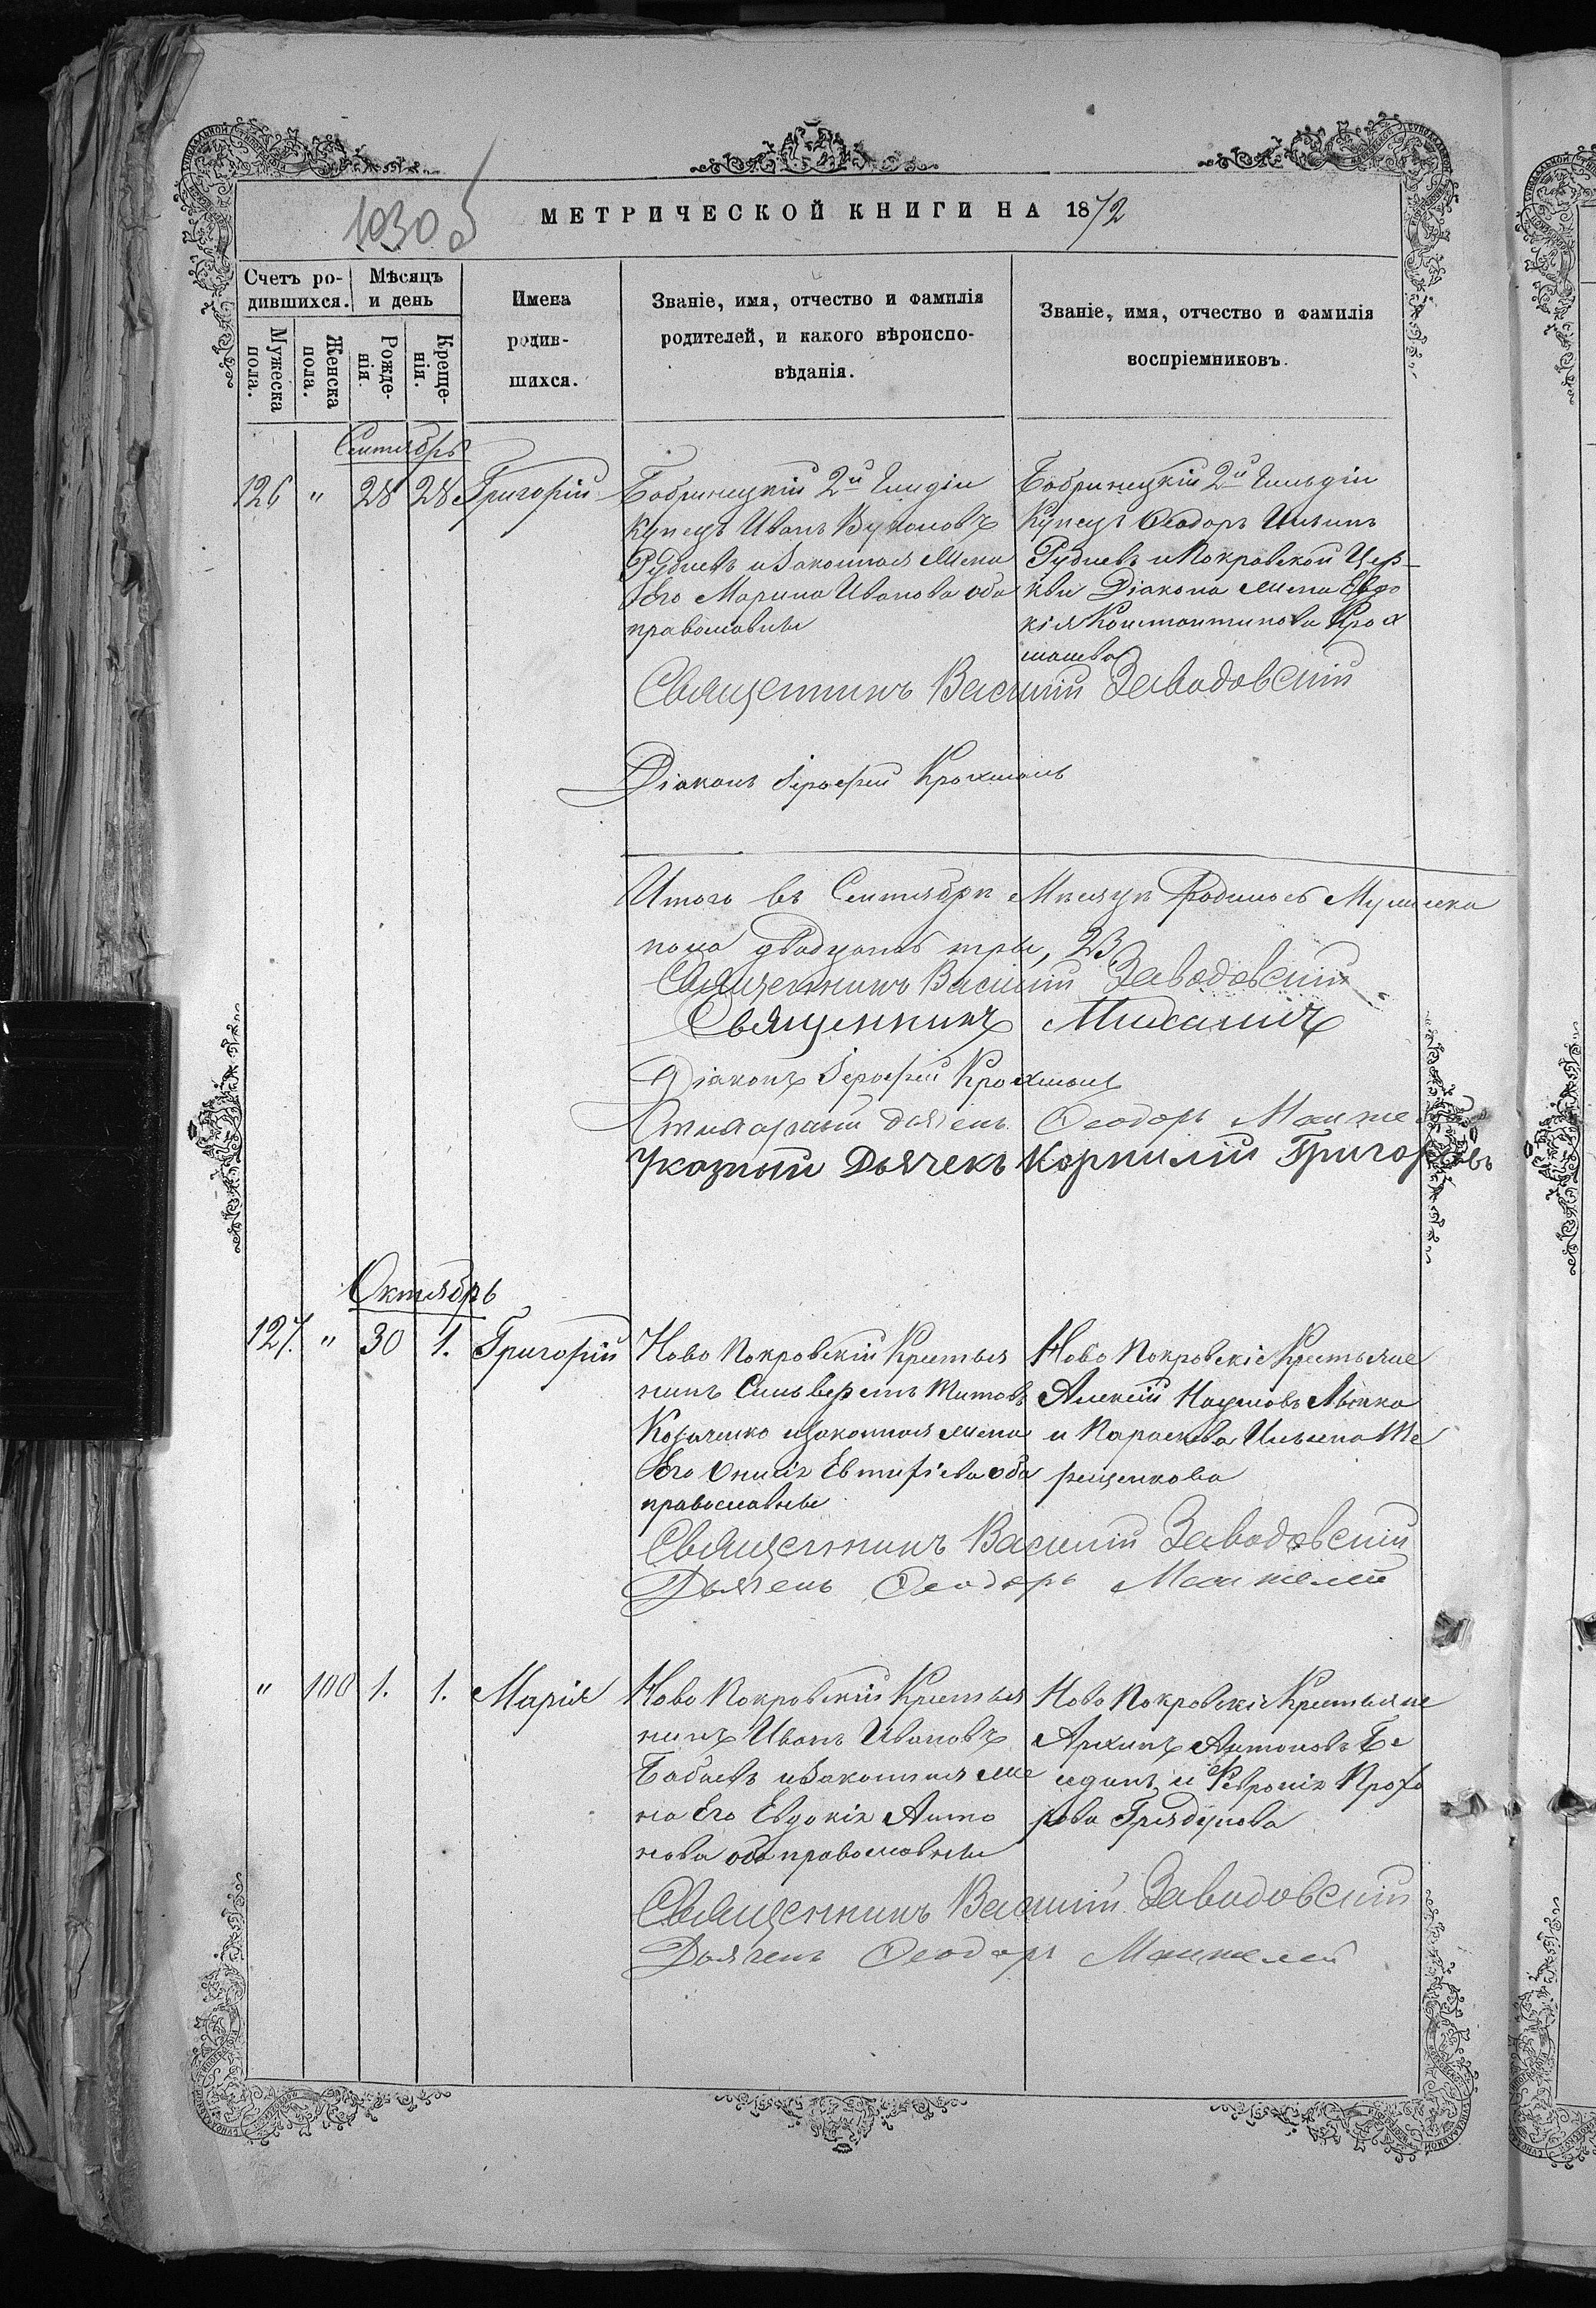 1030 об
МЕТРИЧЕСКОЙ КНИГИ НА 1872
Счетъ ро-
дившихся.
Мѣсяцъ
и день
Имена
родив-
шихся.
Званіе, имя, отчество и фамилія
родителей, и какого вѣроиспо-
вѣданія.
Званіе, имя, отчество и фамилія
воспріемниковъ.
Мужеска
пола.
Женска
пола.
Рожде-
нія.
Креще-
нія.
Сентябрь
126 " 28 28 Григорій
Бобринецкій 2й Гильдіи
Купецъ Иванъ Вуколовъ
Рудневъ и Законная Жена
Его Марина Иванова оба
православные
Бобринецкій 2й Гильдіи
Купецъ Ѳеодоръ Ильинъ
Рудневъ и Покровской Цер-
кви Діакона жена Евдо
кія Константинова Крох
малева
Священникъ Василій Заводовскій
Діаконъ Іероѳей Крохмаль
Итого въ Сентябрѣ Мѣсяцѣ Родилось Мужеска
пола двадцать три, 23
Священникъ Василій Заводовскій
Священникъ
Діаконъ Іероѳей Крохмаль
Дьячекъ Ѳеодоръ
Указный Дьячекъ Корнилій Григоровъ
Октябрь
127. " 30 1. Григорій
Ново Покровскій Крестья
нинъ Сильверстъ Титовъ
Козаченко и Законная жена
Его Евтифіева оба
православные
Ново Покровскіе Крестьяне
Алексій Наумовъ
и Параскева Ильина Те
рещенкова
Священникъ Василій Заводовскій
Дьячекъ Ѳеодоръ
" 100 1. 1. Марія
Ново Покровскій Крестья
нинъ Иванъ Ивановъ
Бабаевъ и Законная же
на Его Евдокія Анто
нова оба православные
Ново Покровскіе Крестьяне
Архипъ Антоновъ Бе
сединъ и Февронія Прохо
рова Грядунова
Священникъ Василій Заводовскій
Дьячекъ Ѳеодоръ